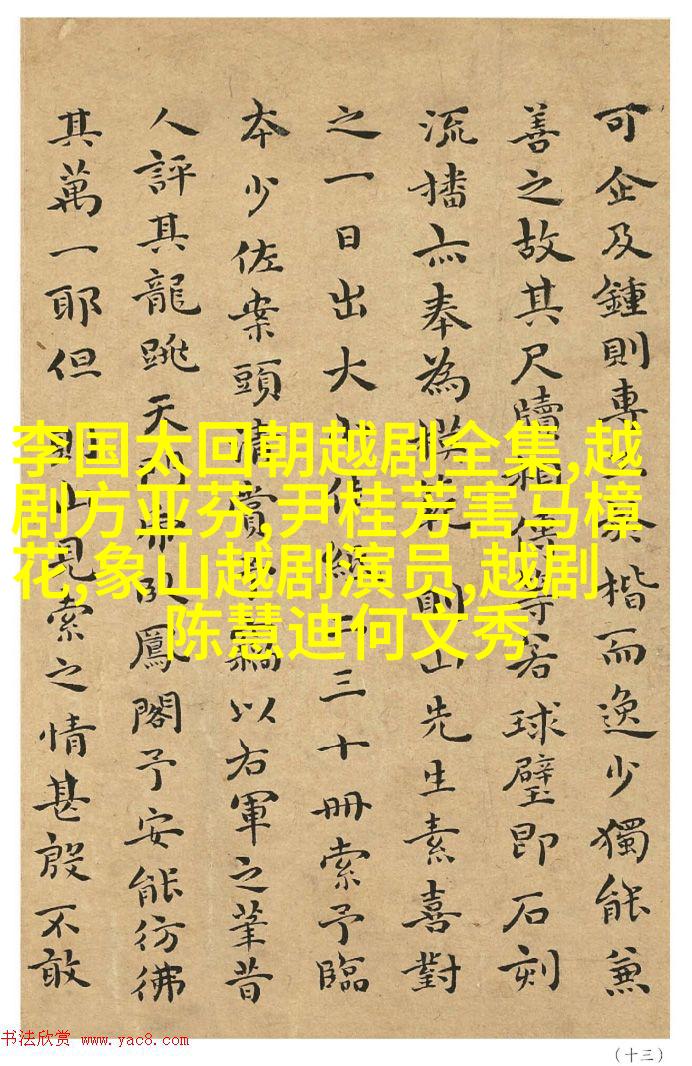 李国太回朝越剧全集,越
剧方亚芬,尹桂芳害马樟
花,象山越剧演员,越剧
陈慧迪何文秀
可企及鍾則專於楷而逸少獨能兼
善之故其尺牘等若球璧即石刻
流播亦奉為模範則山先生素喜對
之一日出大三十冊索予臨
本少佐案頭清賞以右軍之筆昔
人評其龍跳天門卧鳳閣予安能彷彿
其萬一耶但則山見索之情甚殷不敢
书法欣赏 www.yac8.com
(十三)